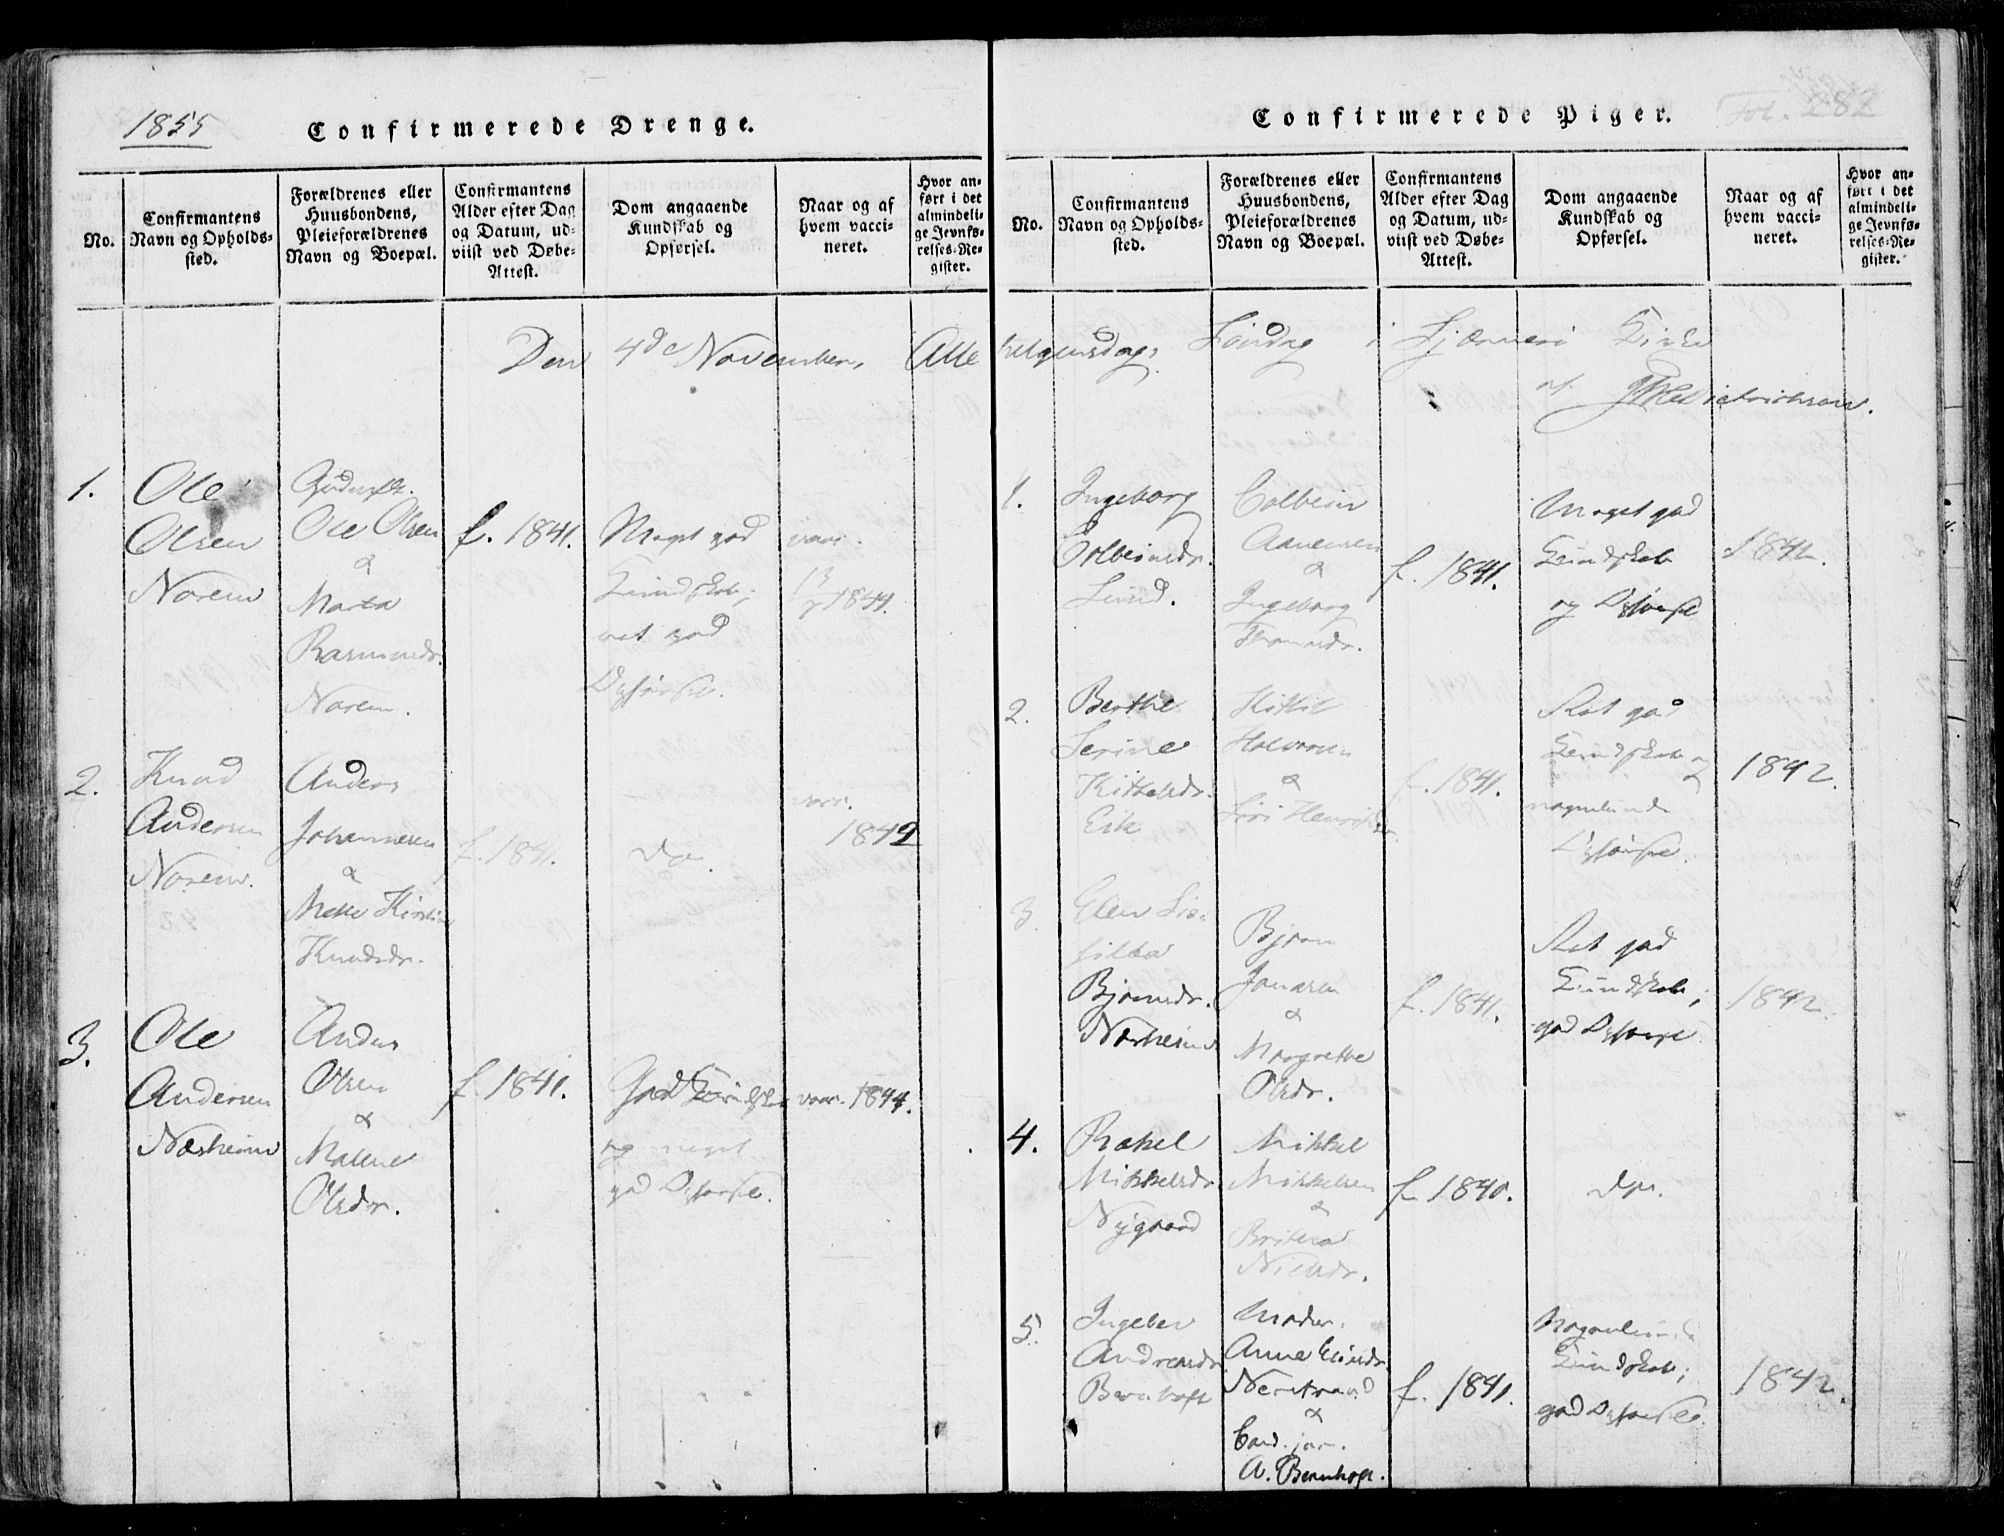 1855
Confirmerede Drenge.
No.
Confirmantens
Navn og Opholds-
sted.
Forældrenes eller
Huusbondens,
Pleieforældrenes
Navn og Boepæl.
Confirmantens
Alder efter Dag
og Datum, ud-
viist ved Døbe-
Attest.
Dom angaaende
Kundskab og
Opførsel.
Naar og af
hvem vacci-
neret.
Hvor an-
ført i det
almindeli-
ge Jevnfø-
relses-Re-
gister.
Den 4de November, Alle
1.
Ole
Olsen
Norem
Ole Olsen
&
Marta
Rasmusdr.
Norem.
f. 1841.
Meget god
Kundskab;
ret god
Opførsel.
vacc.
1844.
2.
Knud
Andersen
Norem.
Anders
Johannesen
&
Mette Kirstine
Knudsdr.
f. 1841.
do.
vacc.
1842
3.
Ole
Andersen
Næsheim
Anders
Olsen
&
Malene
Olsdr.
f. 1841.
God Kundskab
og meget
god Opførsel.
vacc. 1844.
Confirmerede Piger.
Fol. 282
No.
Confirmantens
Navn og Opholds-
sted.
Forældrenes eller
Huusbondens,
Pleieforældrenes
Navn og Boepæl.
Confirmantens
Alder efter Dag
og Datum, ud-
viist ved Døbe-
Attest.
Dom angaaende
Kundskab og
Opførsel.
Naar og af
hvem vacci-
neret.
Hvor an-
ført i det
almindeli-
ge Jevnfø-
relses-Re-
gister.
helgensdag, Søndag i Kirke
af
1.
Ingeborg
Colbeinsdr.
Lund.
Colbein
Aanensen
&
Ingeborg
Thomasdr.
f. 1841.
Meget god
Kundskab
og Opførsel
1842.
2.
Berthe
Serine
Kittelsdr.
Eik
Kittil
Halvorsen
&
Siri Henriksdr
f. 1841.
Ret god
Kundskab og
nogenlunde
Opførsel.
1842.
3
Elen
Bjørnsdr.
Næsheim
Bjørn
Jonasen
&
Margrethe
Olsdr.
f. 1841.
Ret god
Kundskab;
god Opførsel
1842.
4.
Rakel
Mikkelsdr.
Nygaard
Mikkel
Mikkelsen
&
Nielsdr.
f. 1840.
do.
5.
Andreasdr
Bernhoft
Moder.
Anne
Nerstrand
&
Cand. jur.
A. Bernhoft.
f. 1841.
Nogenlunde
Kundskab;
god Opførsel.
1842.